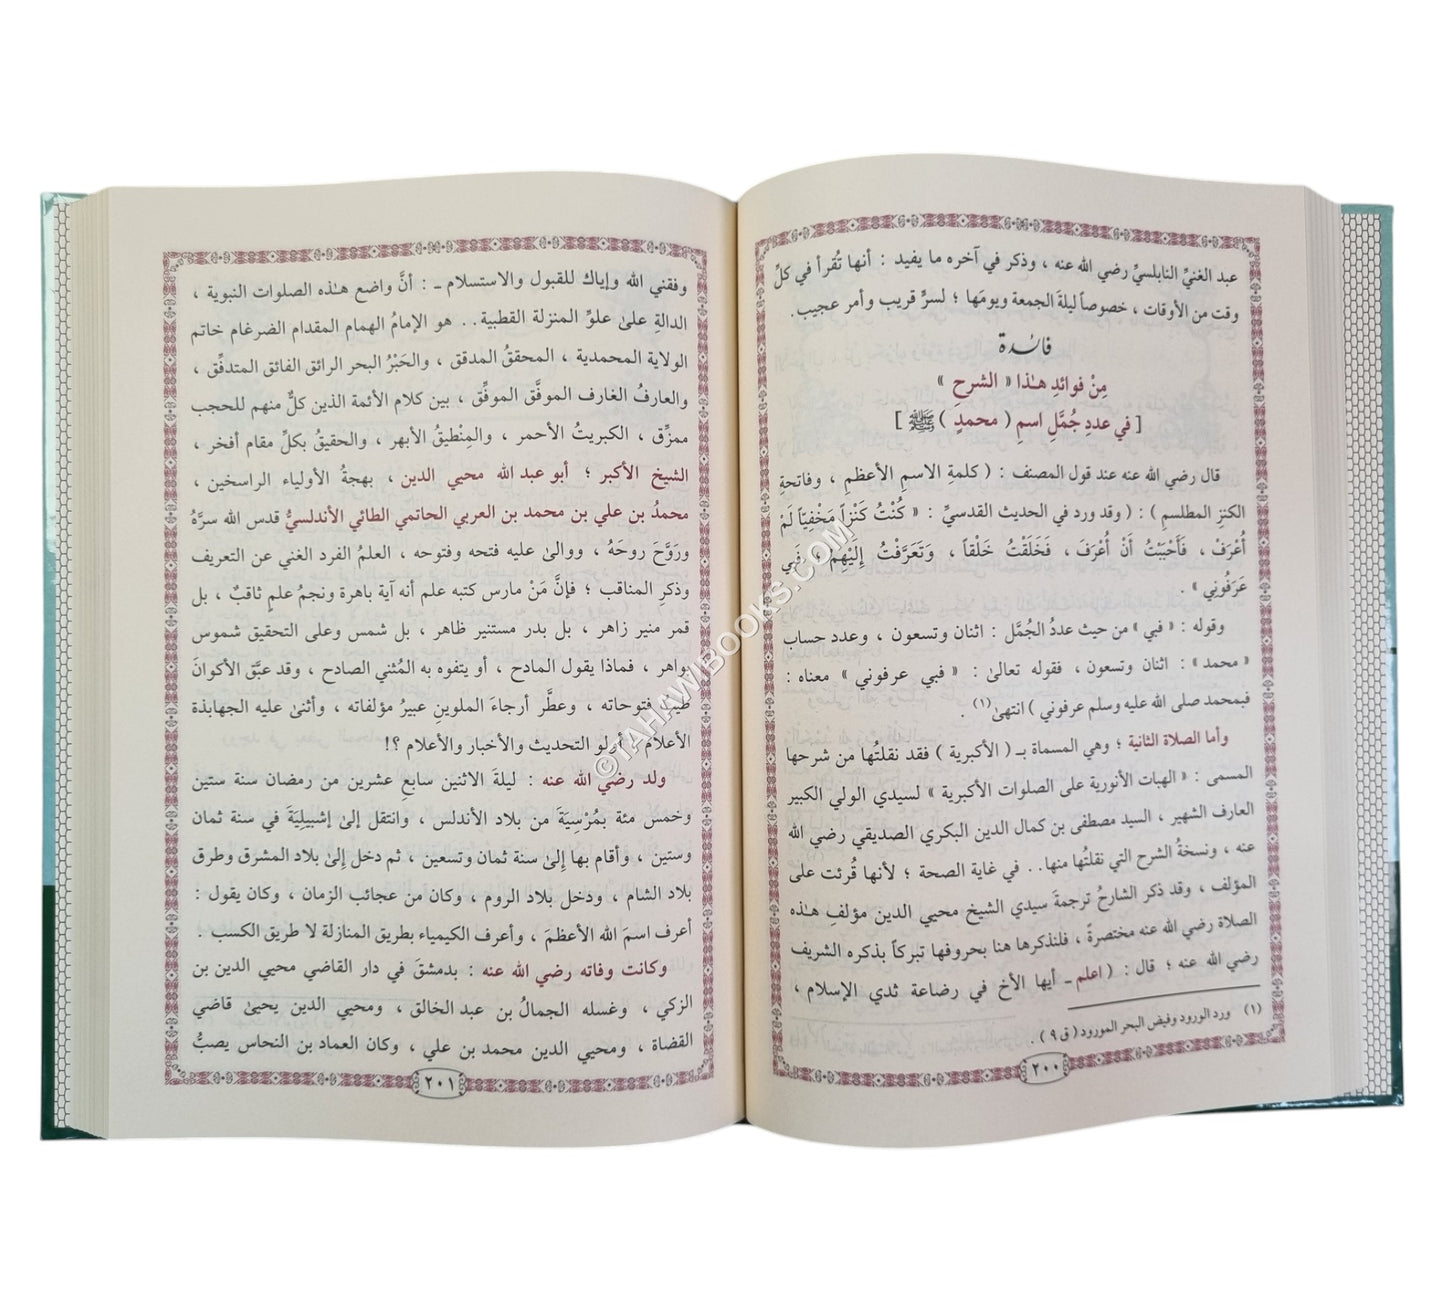 عبد الغنيِّ النابلسيِّ رضي الله عنه ، وذكر في آخره ما يفيد : أنها تُقرأ في كلِّ
وقت من الأوقات ، خصوصاً ليلةَ الجمعة ويومَها ؛ لسرٍّ قريب وأمر عجيب .
فائدة
مِنْ فوائدِ هـٰذا « الشرح »
[ في عددِ جُمَّلِ اسمِ ( محمدٍ ) ﷺ ]
قال رضي الله عنه عند قول المصنف : ( كلمةِ الاسمِ الأعظمِ ، وفاتحةِ
الكنزِ المطلسمِ ) : ( وقد ورد في الحديث القدسيِّ : « كُنْتُ كَنْزاً مَخْفِيّاً لَمْ
أُعْرَفْ ، فَأَحْبَبْتُ أَنْ أُعْرَفَ ، فَخَلَقْتُ خَلْقاً ، وَتَعَرَّفْتُ إِلَيْهِمْ ، فَبِي
عَرَفُونِي » .
وقوله : « فبي » من حيث عددُ الجُمَّل : اثنان وتسعون ، وعدد حساب
« محمد » : اثنان وتسعون ، فقوله تعالىٰ : « فبي عرفوني » معناه :
فبمحمد صلى الله عليه وسلم عرفوني ) انتهىٰ(١) .
وأما الصلاة الثانية ؛ وهي المسماة بـ ( الأكبرية ) فقد نقلتُها من شرحها
المسمى : « الهبات الأنورية على الصلوات الأكبرية » لسيدي الولي الكبير
العارف الشهير ، السيد مصطفى بن كمال الدين البكري الصديقي رضي الله
عنه ، ونسخةُ الشرح التي نقلتُها منها.. في غاية الصحة ؛ لأنها قُرئت على
المؤلف ، وقد ذكر الشارحُ ترجمةَ سيدي الشيخ محيي الدين مؤلفِ هـٰذه
الصلاة رضي الله عنه مختصرةً ، فلنذكرها هنا بحروفها تبركاً بذكره الشريف
رضي الله عنه ؛ قال : ( اعلم ـ أيها الأخ في رضاعة ثدي الإسلام ،
(١) ورد الورود وفيض البحر المورود ( ق ٩ ) .
٢٠٠
وفقني الله وإياك للقبول والاستسلام ـ : أنَّ واضع هـٰذه الصلوات النبوية ،
الدالةِ علىٰ علوِّ المنزلة القطبية.. هو الإمامُ الهمام المقدام الضرغام خاتم
الولاية المحمدية ، المحققُ المدقق ، والحَبْرُ البحر الرائق الفائق المتدفِّق ،
والعارفُ الغارف الموفَّق الموفِّق ، بين كلام الأئمة الذين كلٌّ منهم للحجب
ممزِّق ، الكبريتُ الأحمر ، والمِنْطيقُ الأبهر ، والحقيقُ بكلِّ مقام أفخر ،
الشيخ الأكبر ؛ أبو عبد الله محيي الدين ، بهجةُ الأولياء الراسخين ،
محمدُ بن علي بن محمد بن العربي الحاتمي الطائي الأندلسيُّ قدس الله سرَّهُ
ورَوَّحَ روحَهُ ، ووالىٰ عليه فتحه وفتوحه ، العلمُ الفرد الغني عن التعريف
وذكرِ المناقب ؛ فإنَّ مَنْ مارس كتبه علم أنه آية باهرة ونجمُ علمٍ ثاقبٌ ، بل
قمر منير زاهر ، بل بدر مستنير ظاهر ، بل شمس وعلى التحقيق شموس
بواهر ، فماذا يقول المادح ، أو يتفوه به المُثني الصادح ، وقد عبَّق الأكوانَ
طيبُ فتوحاته ، وعطَّر أرجاءَ الملوين عبيرُ مؤلفاته ، وأثنىٰ عليه الجهابذة
الأعلام ، أولو التحديث والأخبار والأعلام ؟!
ولد رضي الله عنه : ليلةَ الاثنين سابع عشرين من رمضان سنة ستين
وخمس مئة بمُرْسِيَةَ من بلاد الأندلس ، وانتقل إلىٰ إشبيليَةَ في سنة ثمان
وستين ، وأقام بها إلىٰ سنة ثمان وتسعين ، ثم دخل إلىٰ بلاد المشرق وطرق
بلاد الشام ، ودخل بلاد الروم ، وكان من عجائب الزمان ، وكان يقول :
أعرف اسمَ الله الأعظمَ ، وأعرف الكيمياء بطريق المنازلة لا طريق الكسب .
وكانت وفاته رضي الله عنه : بدمشقَ في دار القاضي محيي الدين بن
الزكي ، وغسله الجمالُ بن عبد الخالق ، ومحيي الدين يحيىٰ قاضي
القضاة ، ومحيي الدين محمد بن علي ، وكان العماد بن النحاس يصبُّ
٢٠١
©TAHAWIBOOKS.COM